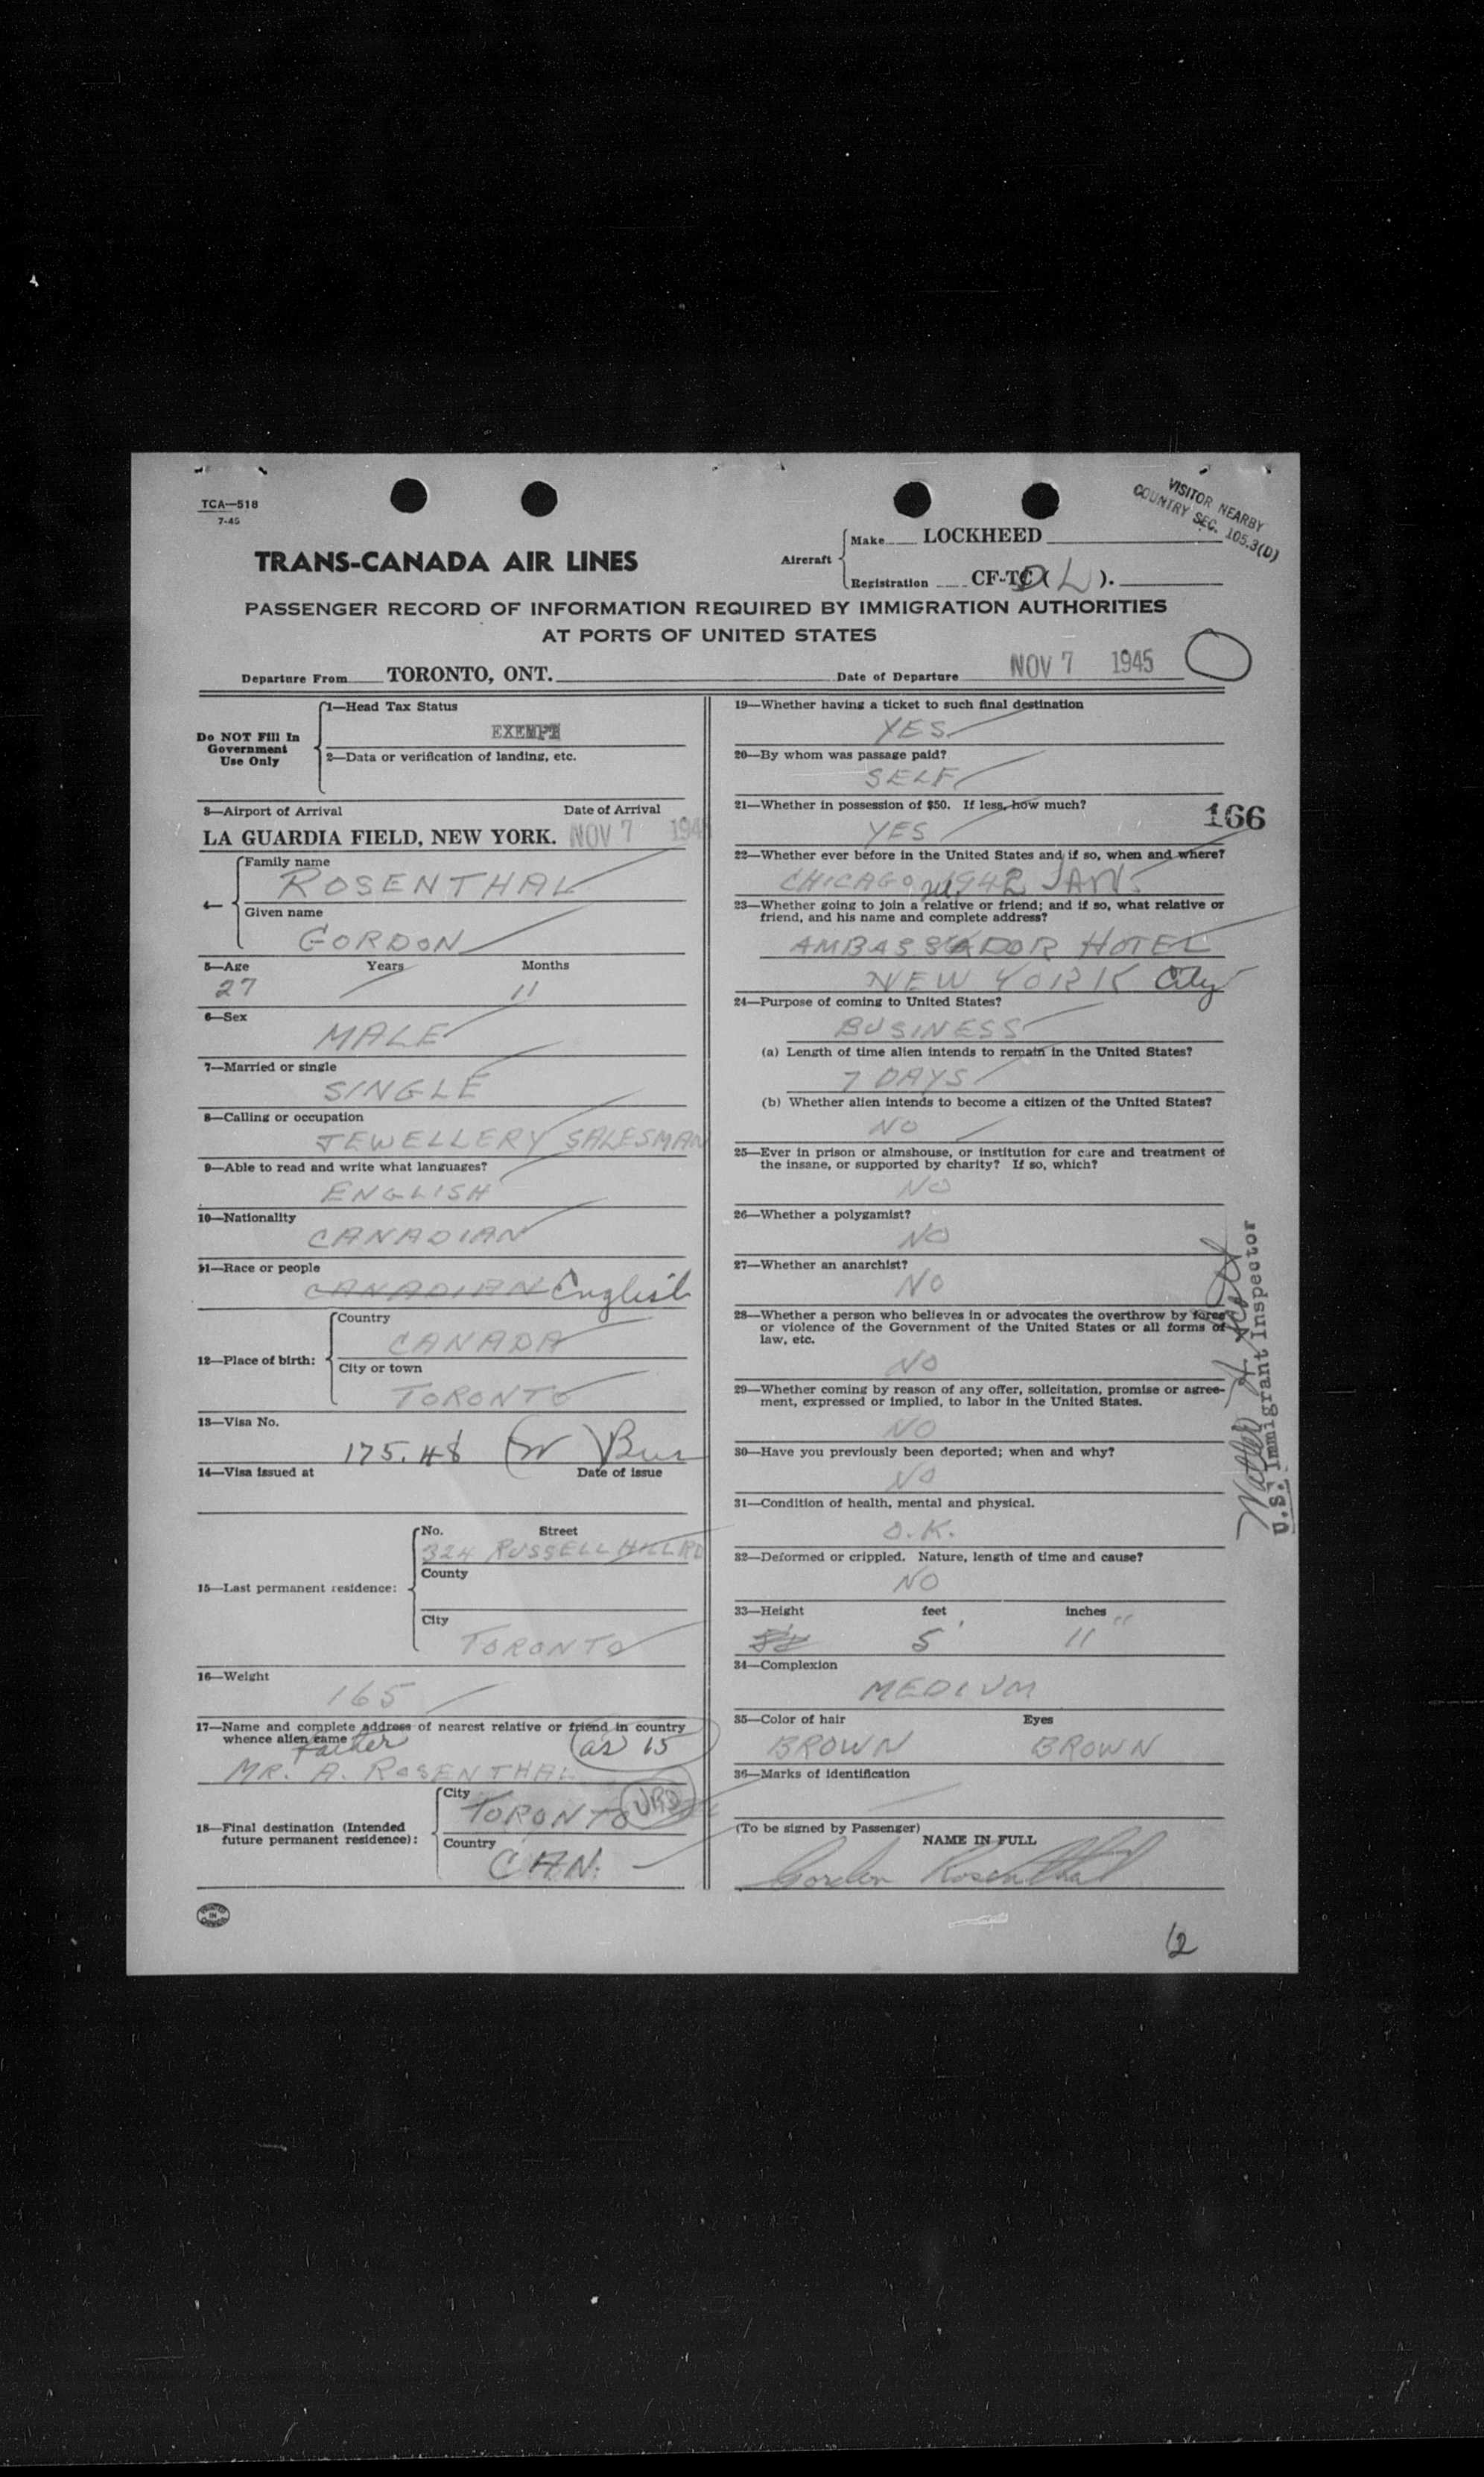 TCA—518
7-45
VISITOR NEARBY
COUNTRY SEC. 105.3(D)
TRANS-CANADA AIR LINES
Aircraft
Make LOCKHEED
Registration CF-TC( L ).
PASSENGER RECORD OF INFORMATION REQUIRED BY IMMIGRATION AUTHORITIES
AT PORTS OF UNITED STATES
Departure From TORONTO, ONT. Date of Departure NOV 7 1945
Do NOT Fill In
Government
Use Only
1—Head Tax Status
EXEMPT
2—Data or verification of landing, etc.
3—Airport of Arrival Date of Arrival
LA GUARDIA FIELD, NEW YORK. NOV 7 194
4—
Family name
ROSENTHAL
Given name
GORDON
5—Age Years Months
27 11
6—Sex
MALE
7—Married or single
SINGLE
8—Calling or occupation
JEWELLERY SALESMAN
9—Able to read and write what languages?
ENGLISH
10—Nationality
CANADIAN
11—Race or people
CANADIAN English
12—Place of birth:
Country
CANADA
City or town
TORONTO
13—Visa No.
175.48 Bus
14—Visa issued at Date of issue
15—Last permanent residence:
No. Street
324 RUSSELL HILL RD
County
City
TORONTO
16—Weight
165
17—Name and complete address of nearest relative or friend in country
whence alien came
father as 15
MR. A. ROSENTHAL
18—Final destination (Intended
future permanent residence):
City
TORONTO
Country
CAN.
PRINTED IN CANADA
19—Whether having a ticket to such final destination
YES
20—By whom was passage paid?
SELF
21—Whether in possession of $50. If less, how much?
YES
166
22—Whether ever before in the United States and if so, when and where?
CHICAGO 1942 JAN.
23—Whether going to join a relative or friend; and if so, what relative or
friend, and his name and complete address?
AMBASSADOR HOTEL
NEW YORK City
24—Purpose of coming to United States?
BUSINESS
(a) Length of time alien intends to remain in the United States?
7 DAYS
(b) Whether alien intends to become a citizen of the United States?
NO
25—Ever in prison or almshouse, or institution for care and treatment of
the insane, or supported by charity? If so, which?
NO
26—Whether a polygamist?
NO
27—Whether an anarchist?
NO
28—Whether a person who believes in or advocates the overthrow by force
or violence of the Government of the United States or all forms of
law, etc.
NO
29—Whether coming by reason of any offer, solicitation, promise or agree-
ment, expressed or implied, to labor in the United States.
NO
30—Have you previously been deported; when and why?
NO
31—Condition of health, mental and physical.
O.K.
32—Deformed or crippled. Nature, length of time and cause?
NO
33—Height feet inches
5' 11"
34—Complexion
MEDIUM
35—Color of hair Eyes
BROWN BROWN
36—Marks of identification
(To be signed by Passenger)
NAME IN FULL
Gordon Rosenthal
Walter H
U.S. Immigrant Inspector